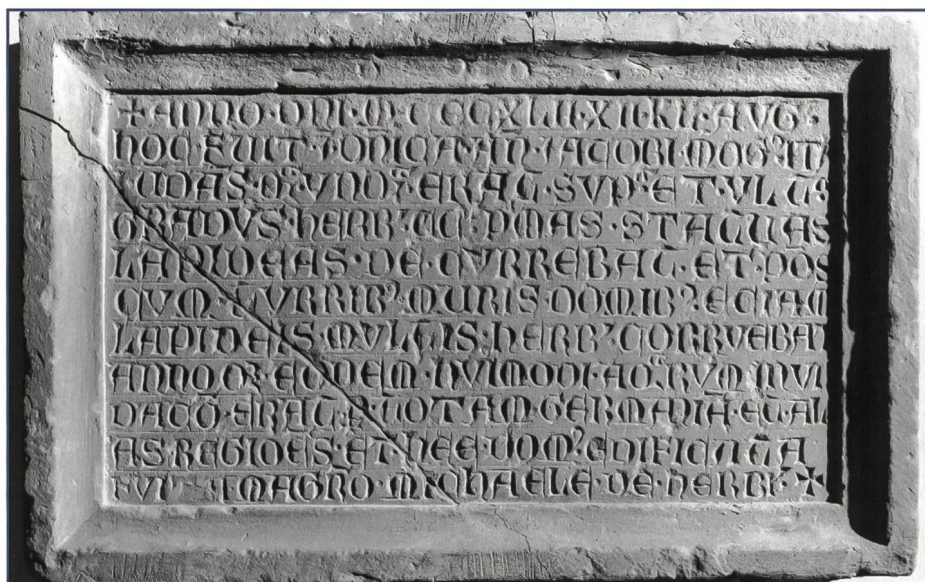 ✝ ANNO · DNI · M · CCC · XLII · XII · KL · AVG ·
HOC · FUIT · DNICA · AN · IACOBI · MOG
UNDAS · ERAT · SUP · ET · ULT
GRADUS · HERB · PMAS · STATUAS
LAPIDEAS · DE · CURREBAT · ET · POS
CUM · TURRIB · MURIS · DOMIB · ECIAM
LAPIDEIS · MULTIS · HERB · CORRUEBAT
ANNO · EODEM · HUIMODI · AQRUM · INUN
DACO · ERAT · TOTAM · GERMANIA · ET · ALI
AS · REGIOES · ET · HEE · DOM · EDIFICATA
FUIT · MAGRO · MICHAELE · DE · HERBK · ✝